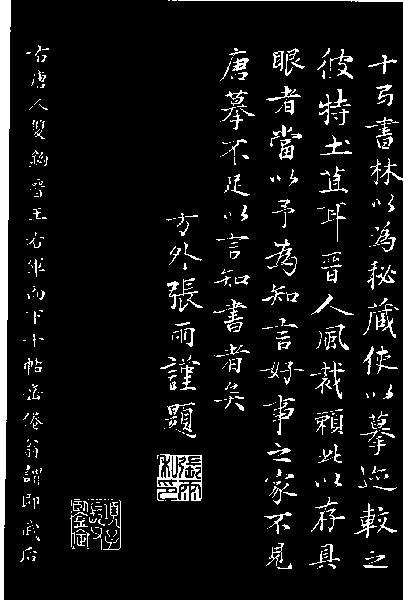 十馬書林以為秘藏使以摹迹較之
彼特土苴耳晉人風裁賴此以存具
眼者當以予為知言好事之家不見
唐摹不足以言知書者矣
方外張雨謹題
右唐人雙鉤晉王右軍而下十帖岳倦翁謂即武后